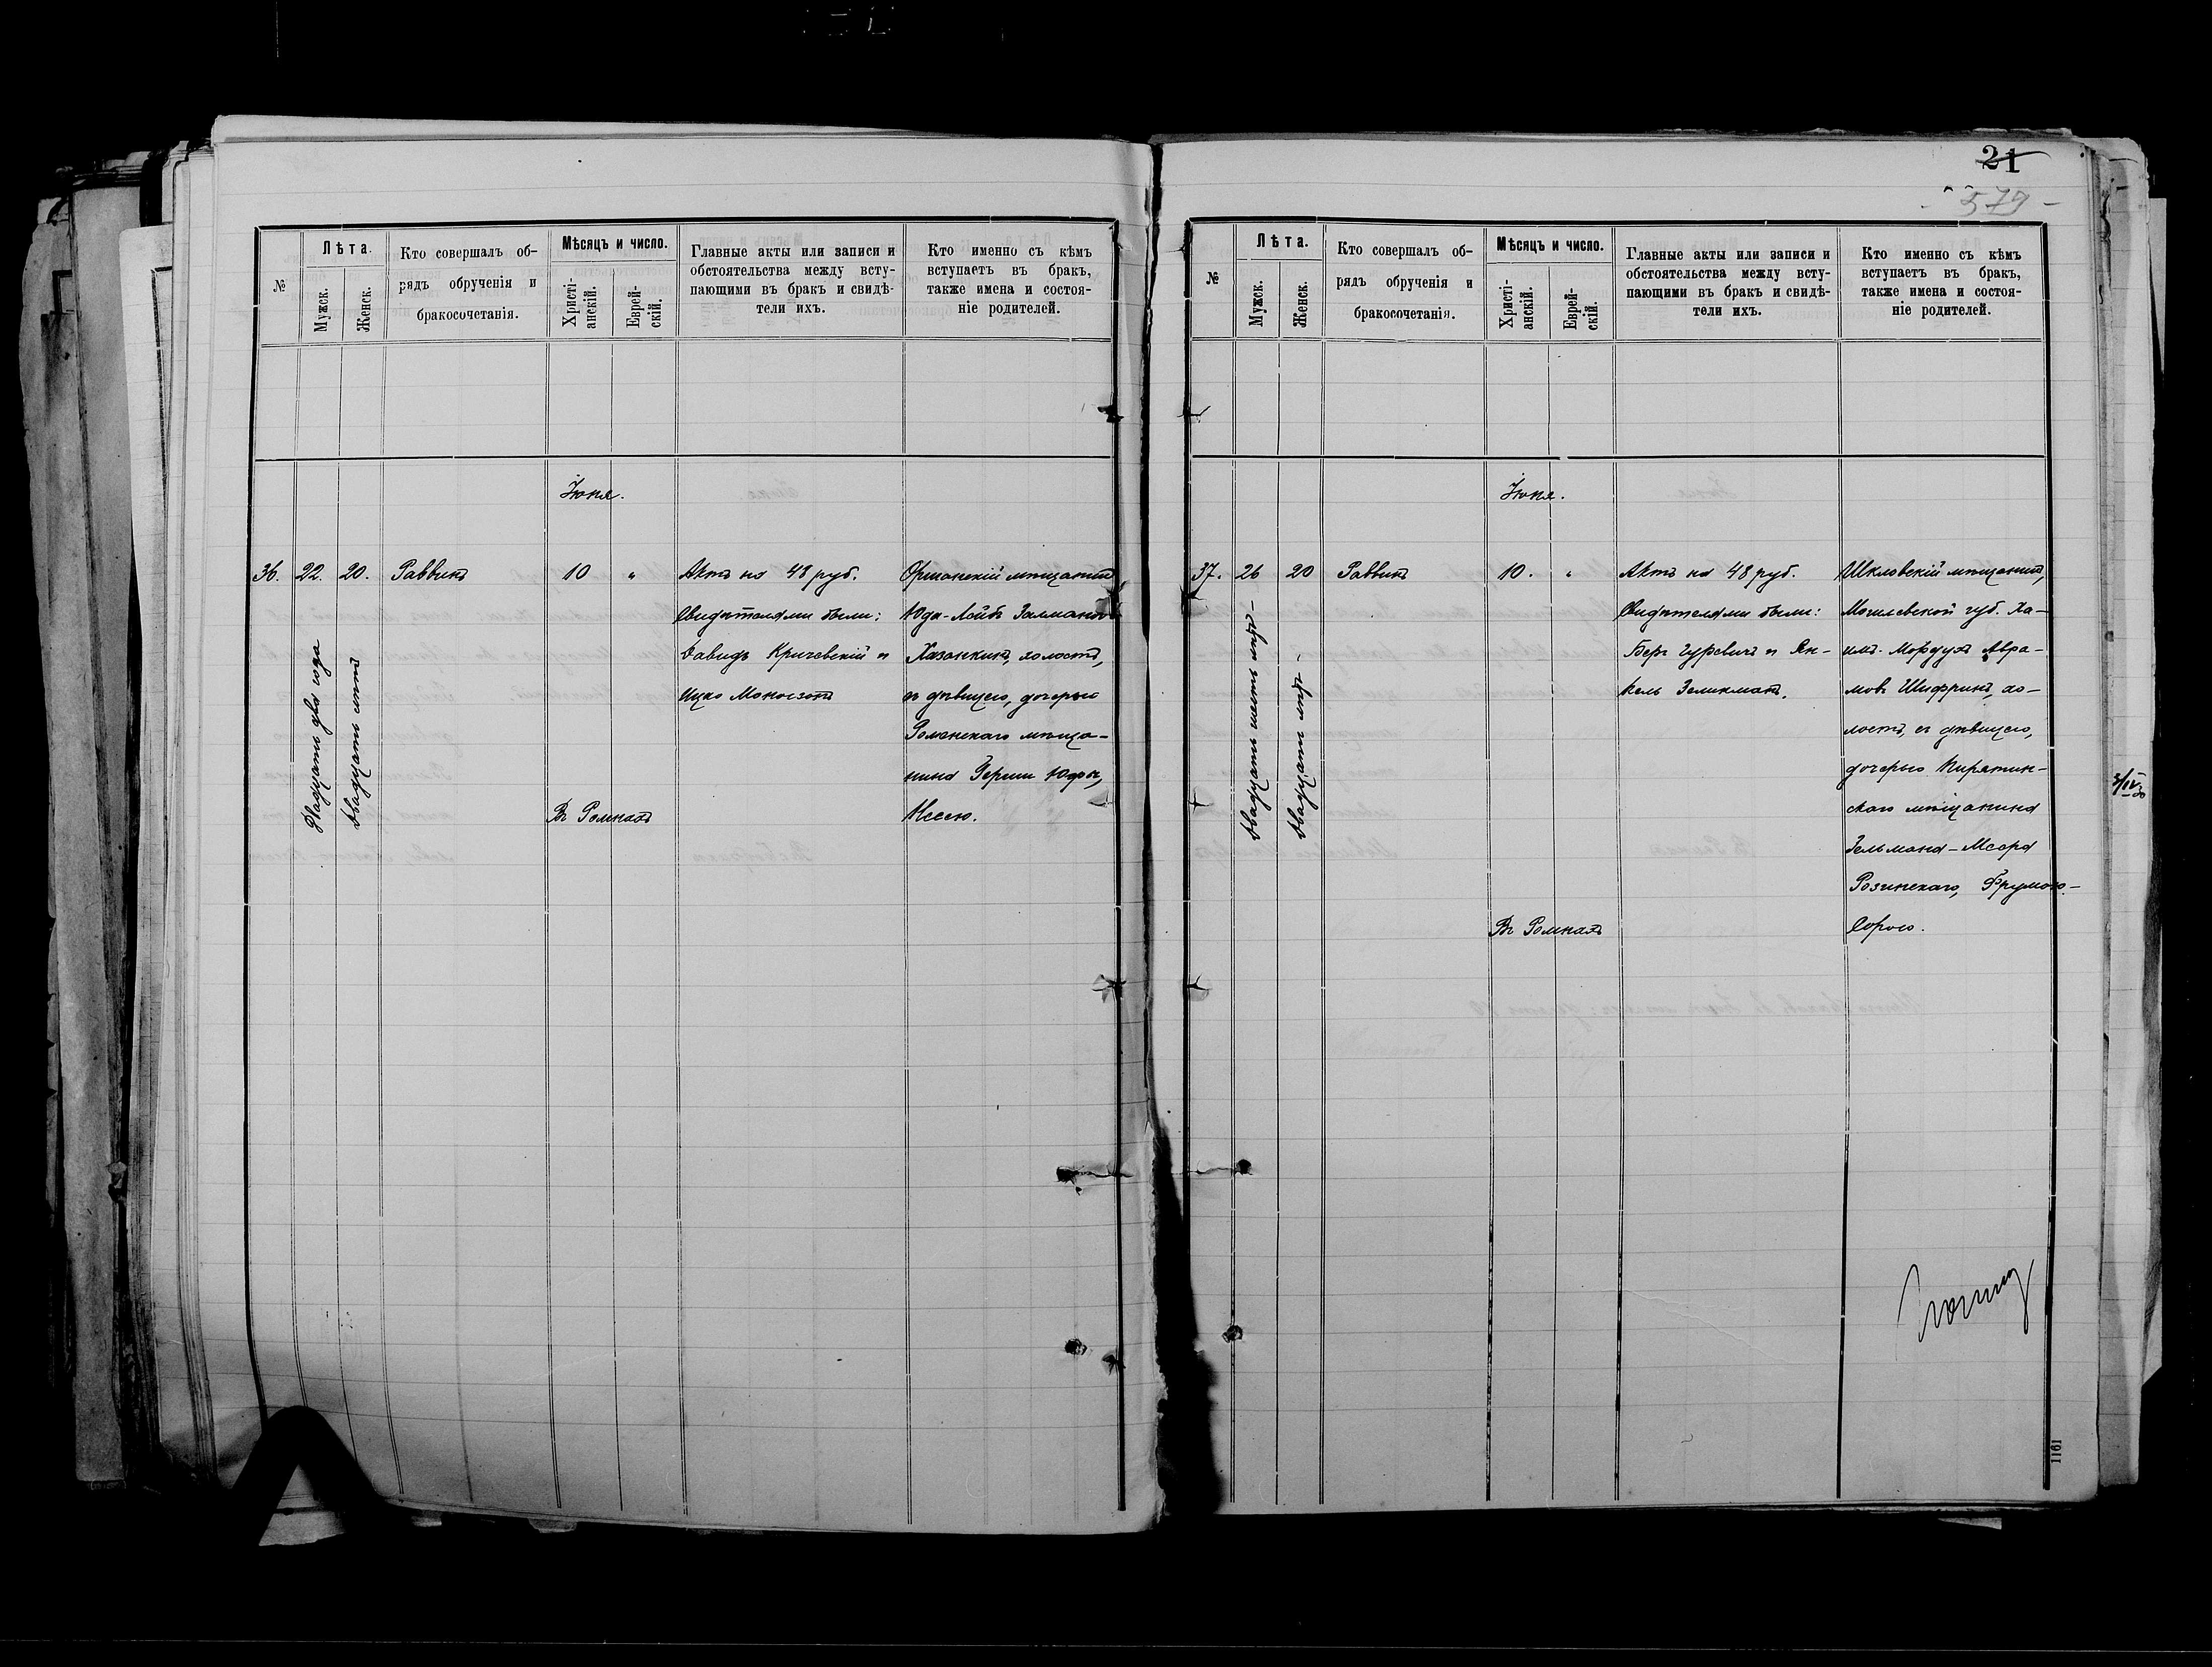 №
Лѣта.
Мужск.
Женск.
Кто совершалъ об-
рядъ обрученія и
бракосочетанія.
Мѣсяцъ и число.
Христі-
анскій.
Еврей-
скій.
Главные акты или записи и
обстоятельства между всту-
пающими въ бракъ и свидѣ-
тели ихъ.
Кто именно съ кѣмъ
вступаетъ въ бракъ,
также имена и состоя-
ніе родителей.
Іюня.
36. 22. 20. Раввинъ 10 "
Двадцать два года
Двадцать лѣтъ
Въ Ромнахъ
Актъ на 48 руб.
Свидѣтелями были:
Давидъ Кричевскій и
Ицко Моногзонъ
Оршанскій мѣщанинъ
Юда-Лейбъ Залмановъ
Хазанкинъ, холостъ,
съ дѣвицею, дочерью
Роменскаго мѣща-
нина Герши Юдов,
Нессею.
21
579 -
№
Лѣта.
Мужск.
Женск.
Кто совершалъ об-
рядъ обрученія и
бракосочетанія.
Мѣсяцъ и число.
Христі-
анскій.
Еврей-
скій.
Главные акты или записи и
обстоятельства между всту-
пающими въ бракъ и свидѣ-
тели ихъ.
Кто именно съ кѣмъ
вступаетъ въ бракъ,
также имена и состоя-
ніе родителей.
Іюня.
37. 26 20 Раввинъ 10. "
Двадцать шесть лѣтъ
Двадцать лѣтъ
Въ Ромнахъ
Актъ на 48 руб.
Свидѣтелями были:
Беръ Гуревичъ и Ян-
кель Зеликманъ.
Шкловскій мѣщанинъ,
Могилевской губ. Ха-
имъ-Мордухъ Авра-
мовъ Шифринъ, хо-
лостъ, съ дѣвицею,
дочерью Пирятин-
скаго мѣщанина
Зельмана-Меера
Розинскаго, Фрумою-
Сорою.
1161